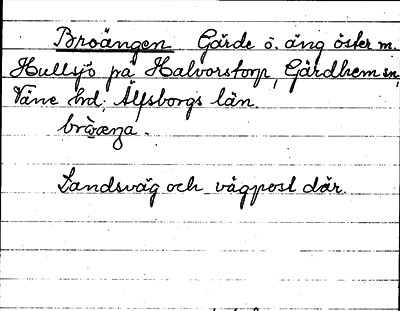 Broängen Gärde o. äng öster m.
Hullsjö på Halvorstorp, Gärdhem sn,
Väne hd, Älfsborgs län.
Landsväg och vägpost där.